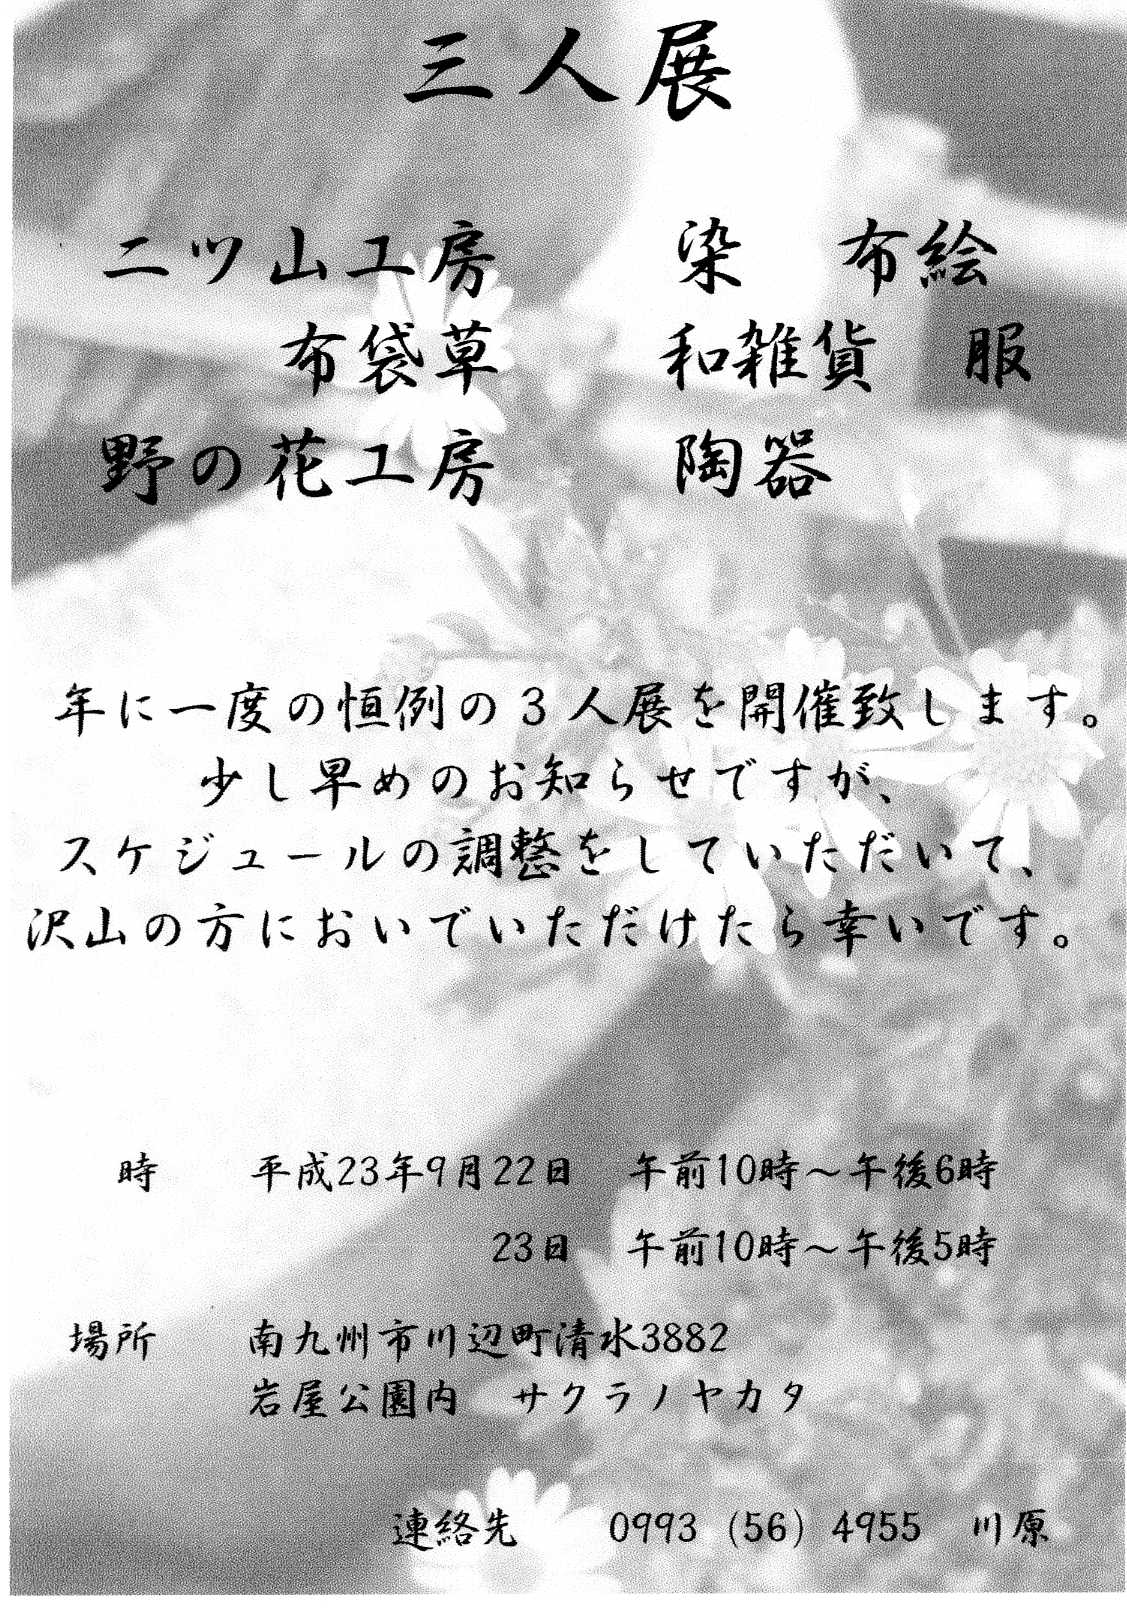 三人展
二ツ山工房　染　布絵
布袋草　和雑貨　服
野の花工房　陶器
年に一度の恒例の３人展を開催致します。
少し早めのお知らせですが、
スケジュールの調整をしていただいて、
沢山の方においでいただけたら幸いです。
時　平成23年9月22日　午前10時～午後6時
23日　午前10時～午後5時
場所　南九州市川辺町清水3882
岩屋公園内　サクラノヤカタ
連絡先　0993（56）4955　川原